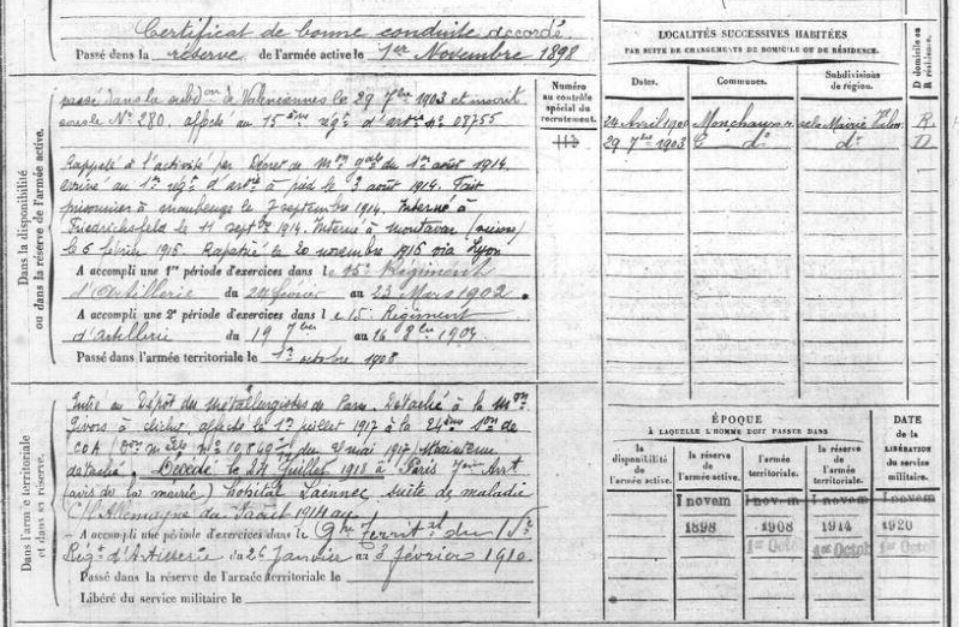 Certificat de bonne conduite accordé.
Passé dans la réserve de l'armée active le 1er Novembre 1898
Dans la disponibilité
ou dans la réserve de l'armée active.
passé dans la subdon de Valenciennes le 29 7bre 1903 et inscrit
sous le No 280, affecté au 15ème régt d'artrie no 08755
Rappelé à l'activité par Décret de mon gale du 1er août 1914
arrivé au 1er régt d'artie à pied le 3 août 1914. Fait
prisonnier à maubeuge le 7 septembre 1914. Interné à
Friedrichsfeld le 11 septbre 1914. Interné à montavar (suisse)
le 6 février 1916 Rapatrié le 20 novembre 1916 via Lyon
A accompli une 1re période d'exercices dans le 15e Régiment
d'Artillerie du 24 février au 23 Mars 1902.
A accompli une 2e période d'exercices dans le 15e Régiment
d'artillerie du 19 7bre au 16 8bre 1904
Passé dans l'armée territoriale le 1er octobre 1908
Numéro
au contrôle
spécial du
recrutement.
LOCALITÉS SUCCESSIVES HABITÉES
PAR SUITE DE CHANGEMENTS DE DOMICILE OU DE RÉSIDENCE.
D domicile ou
R résidence.
Dates.
Communes.
Subdivisions
de région.
24 Avril 1900 Monchaux Mairie R
29 7bre 1903 do do D
Dans l'armée territoriale
et dans sa réserve.
Entré au Dépôt des métallurgistes de Paris. Détaché à la mon
Givors à clichy, affecté le 1er juillet 1917 à la 24ème Son de
COA mai 1917) Maintenu
détaché. Décédé le 24 Juillet 1918 à Paris 7ème Arrt
(avis de la mairie) hôpital Laënnec suite de maladie
C/ l'Allemagne du août 1914 au
A accompli une période d'exercices dans le Territ du 15e
Régt d'Artillerie du 26 Janvier au 3 février 1910
Passé dans la réserve de l'armée territoriale le
Libéré du service militaire le
ÉPOQUE
À LAQUELLE L'HOMME DOIT PASSER DANS
DATE
de la
LIBÉRATION
du service
militaire.
la
disponibilité
de l'armée active.
la réserve
de
l'armée active.
l'armée
territoriale.
la réserve
de l'armée
territoriale.
1 novem 1 novem 1 novem 1 novem
1898 1908 1914 1920
1er Octob 1er Octob 1er Octob